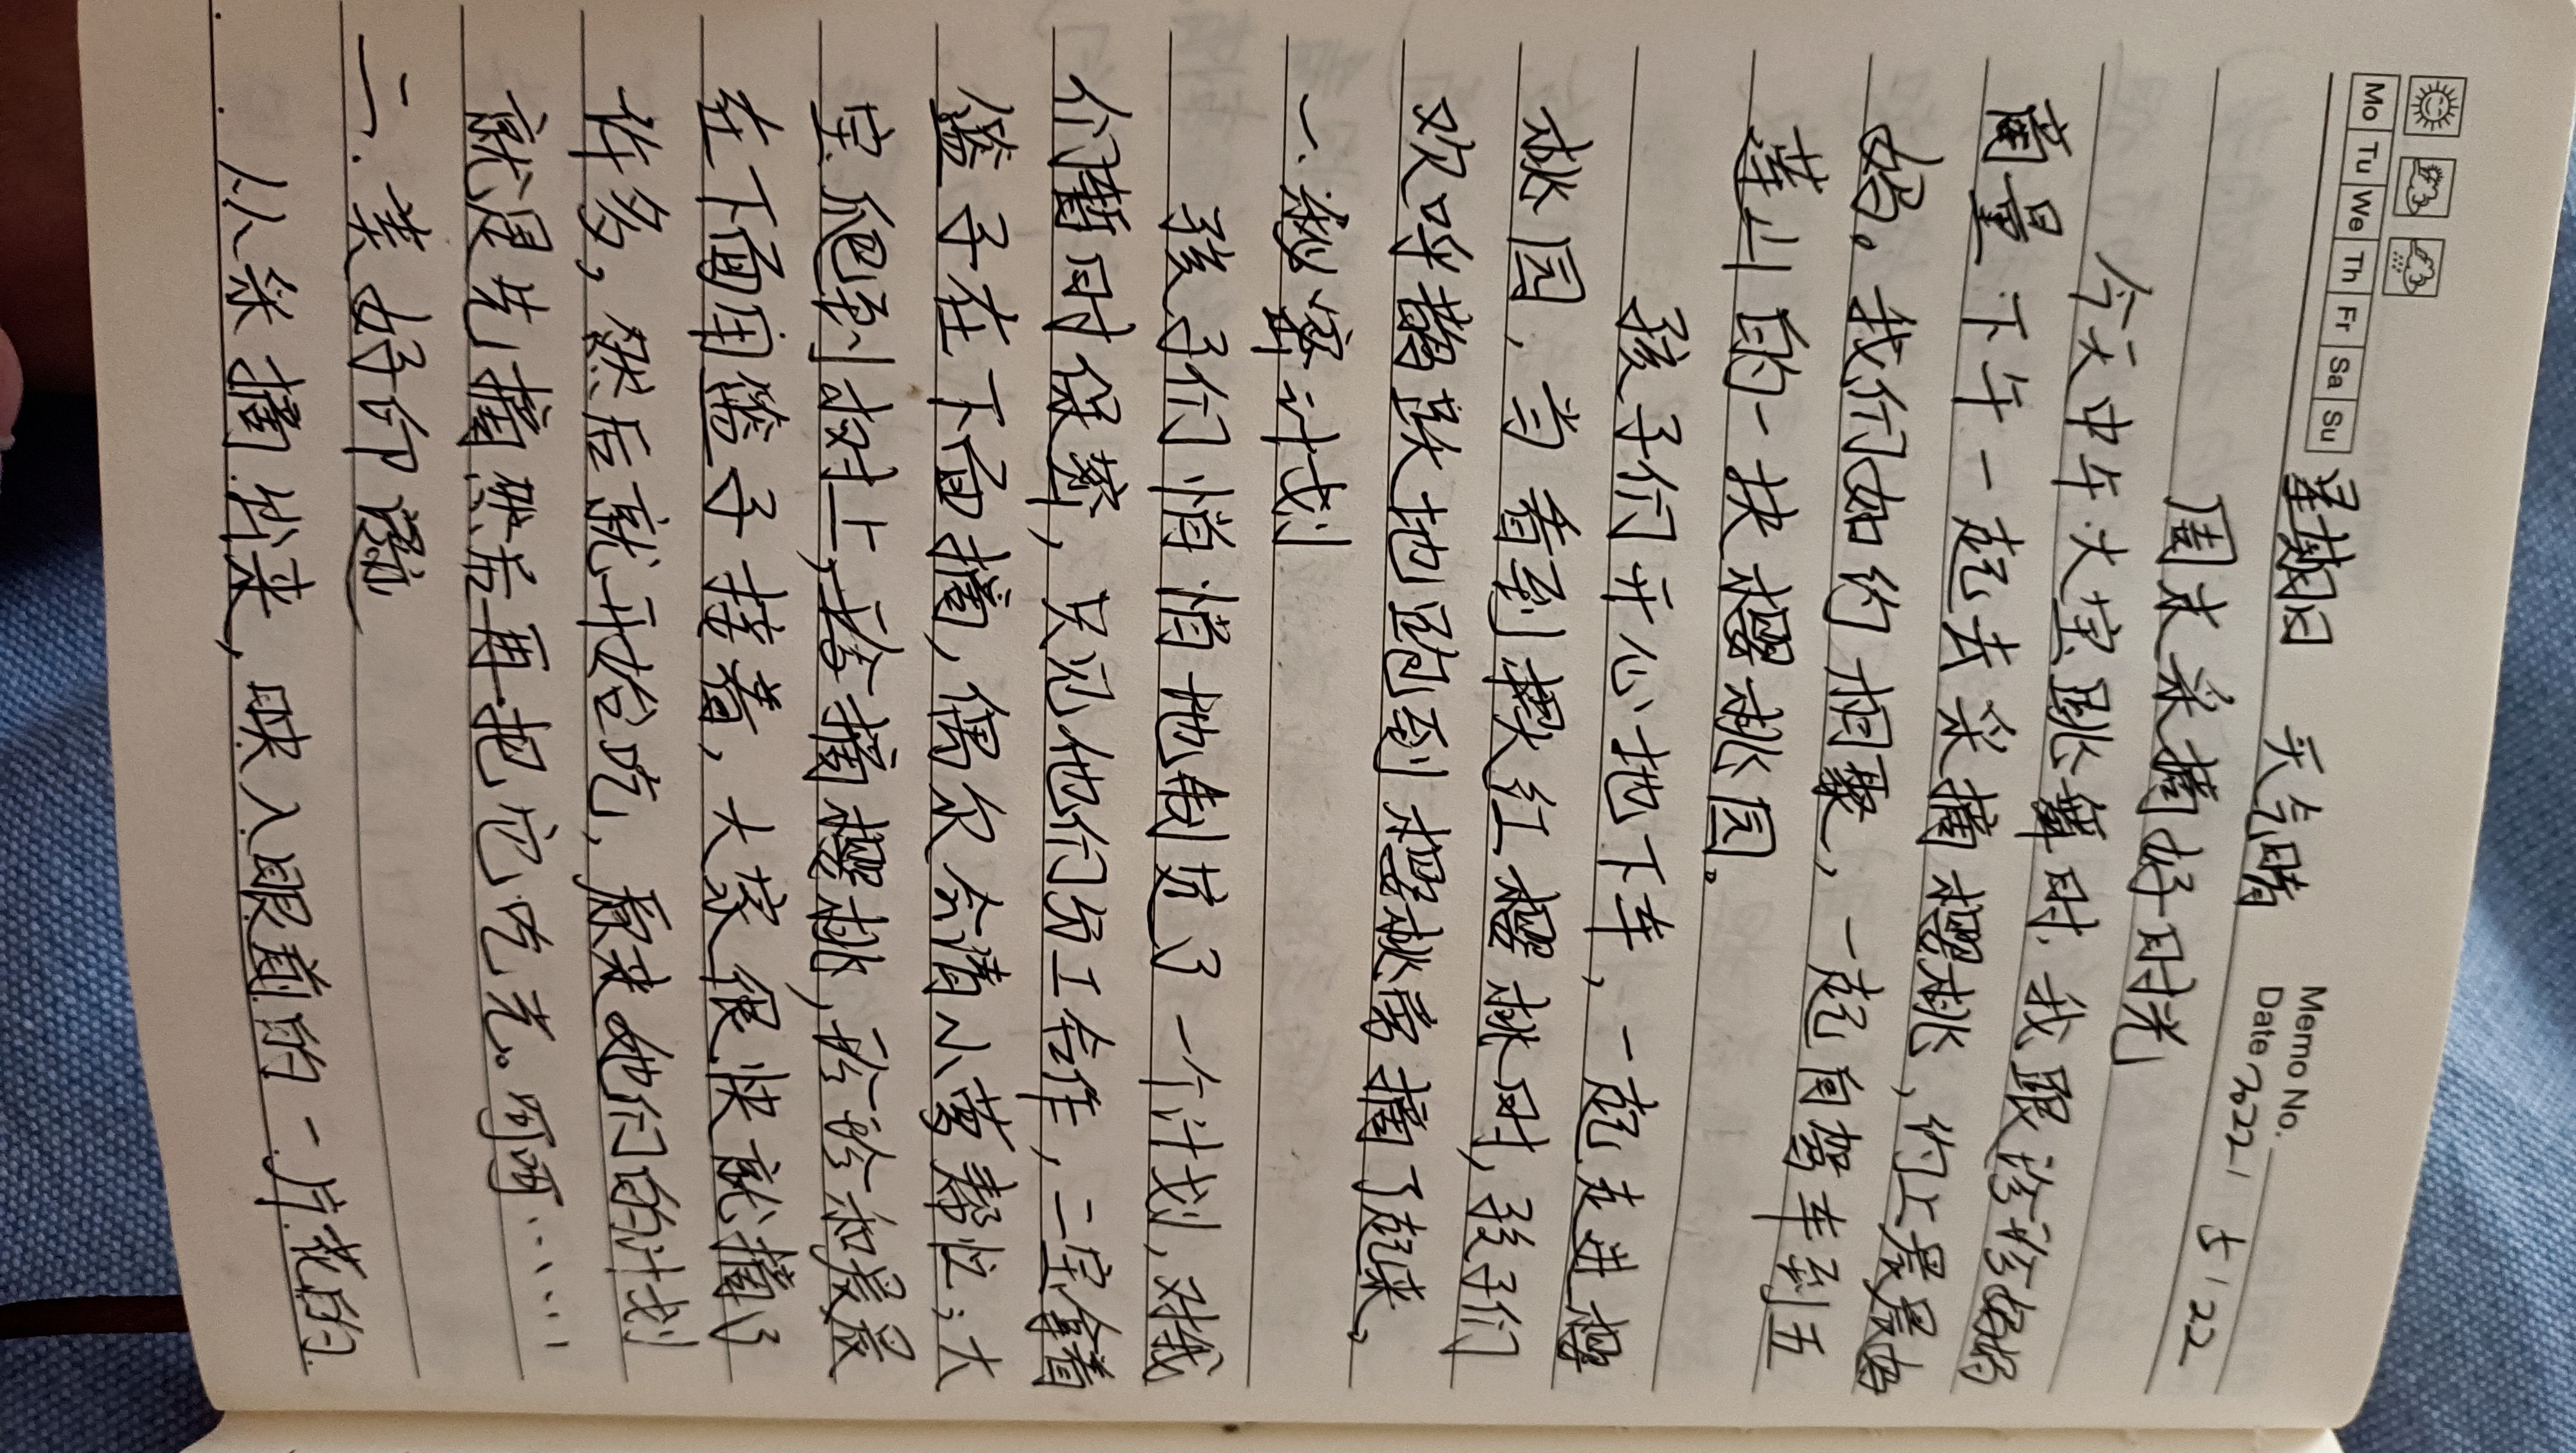 Mo Tu We Th Fr Sa Su 星期日 天气晴 Memo No.
Date 2022 / 5 / 22
周末采摘好时光
今天中午大宝跳舞时,我跟诊诊妈妈
商量下午一起去采摘樱桃,约上晨晨妈
妈。我们如约相聚,一起自驾车到五
莲山的一块樱桃园。
孩子们开心地下车,一起走进樱
桃园,当看到摸红樱桃时,孩子们
欢呼着跃地跑到樱桃旁摘了起来。
一.秘密计划
孩子们悄悄地制定了一个计划,对我
们暂时保密,只见他们分工合作,二宝拿着
篮子在下面摘,偶尔会请小薯帮忙;大
宝爬到树上去摘樱桃,诊诊和晨晨
在下面用篮子接着,大家很快就摘了
许多,然后就开始吃,原来她们的计划
就是先摘然后再把它吃光。呵呵……
二.美好印迹
从采摘出来,映入眼前的一片花的